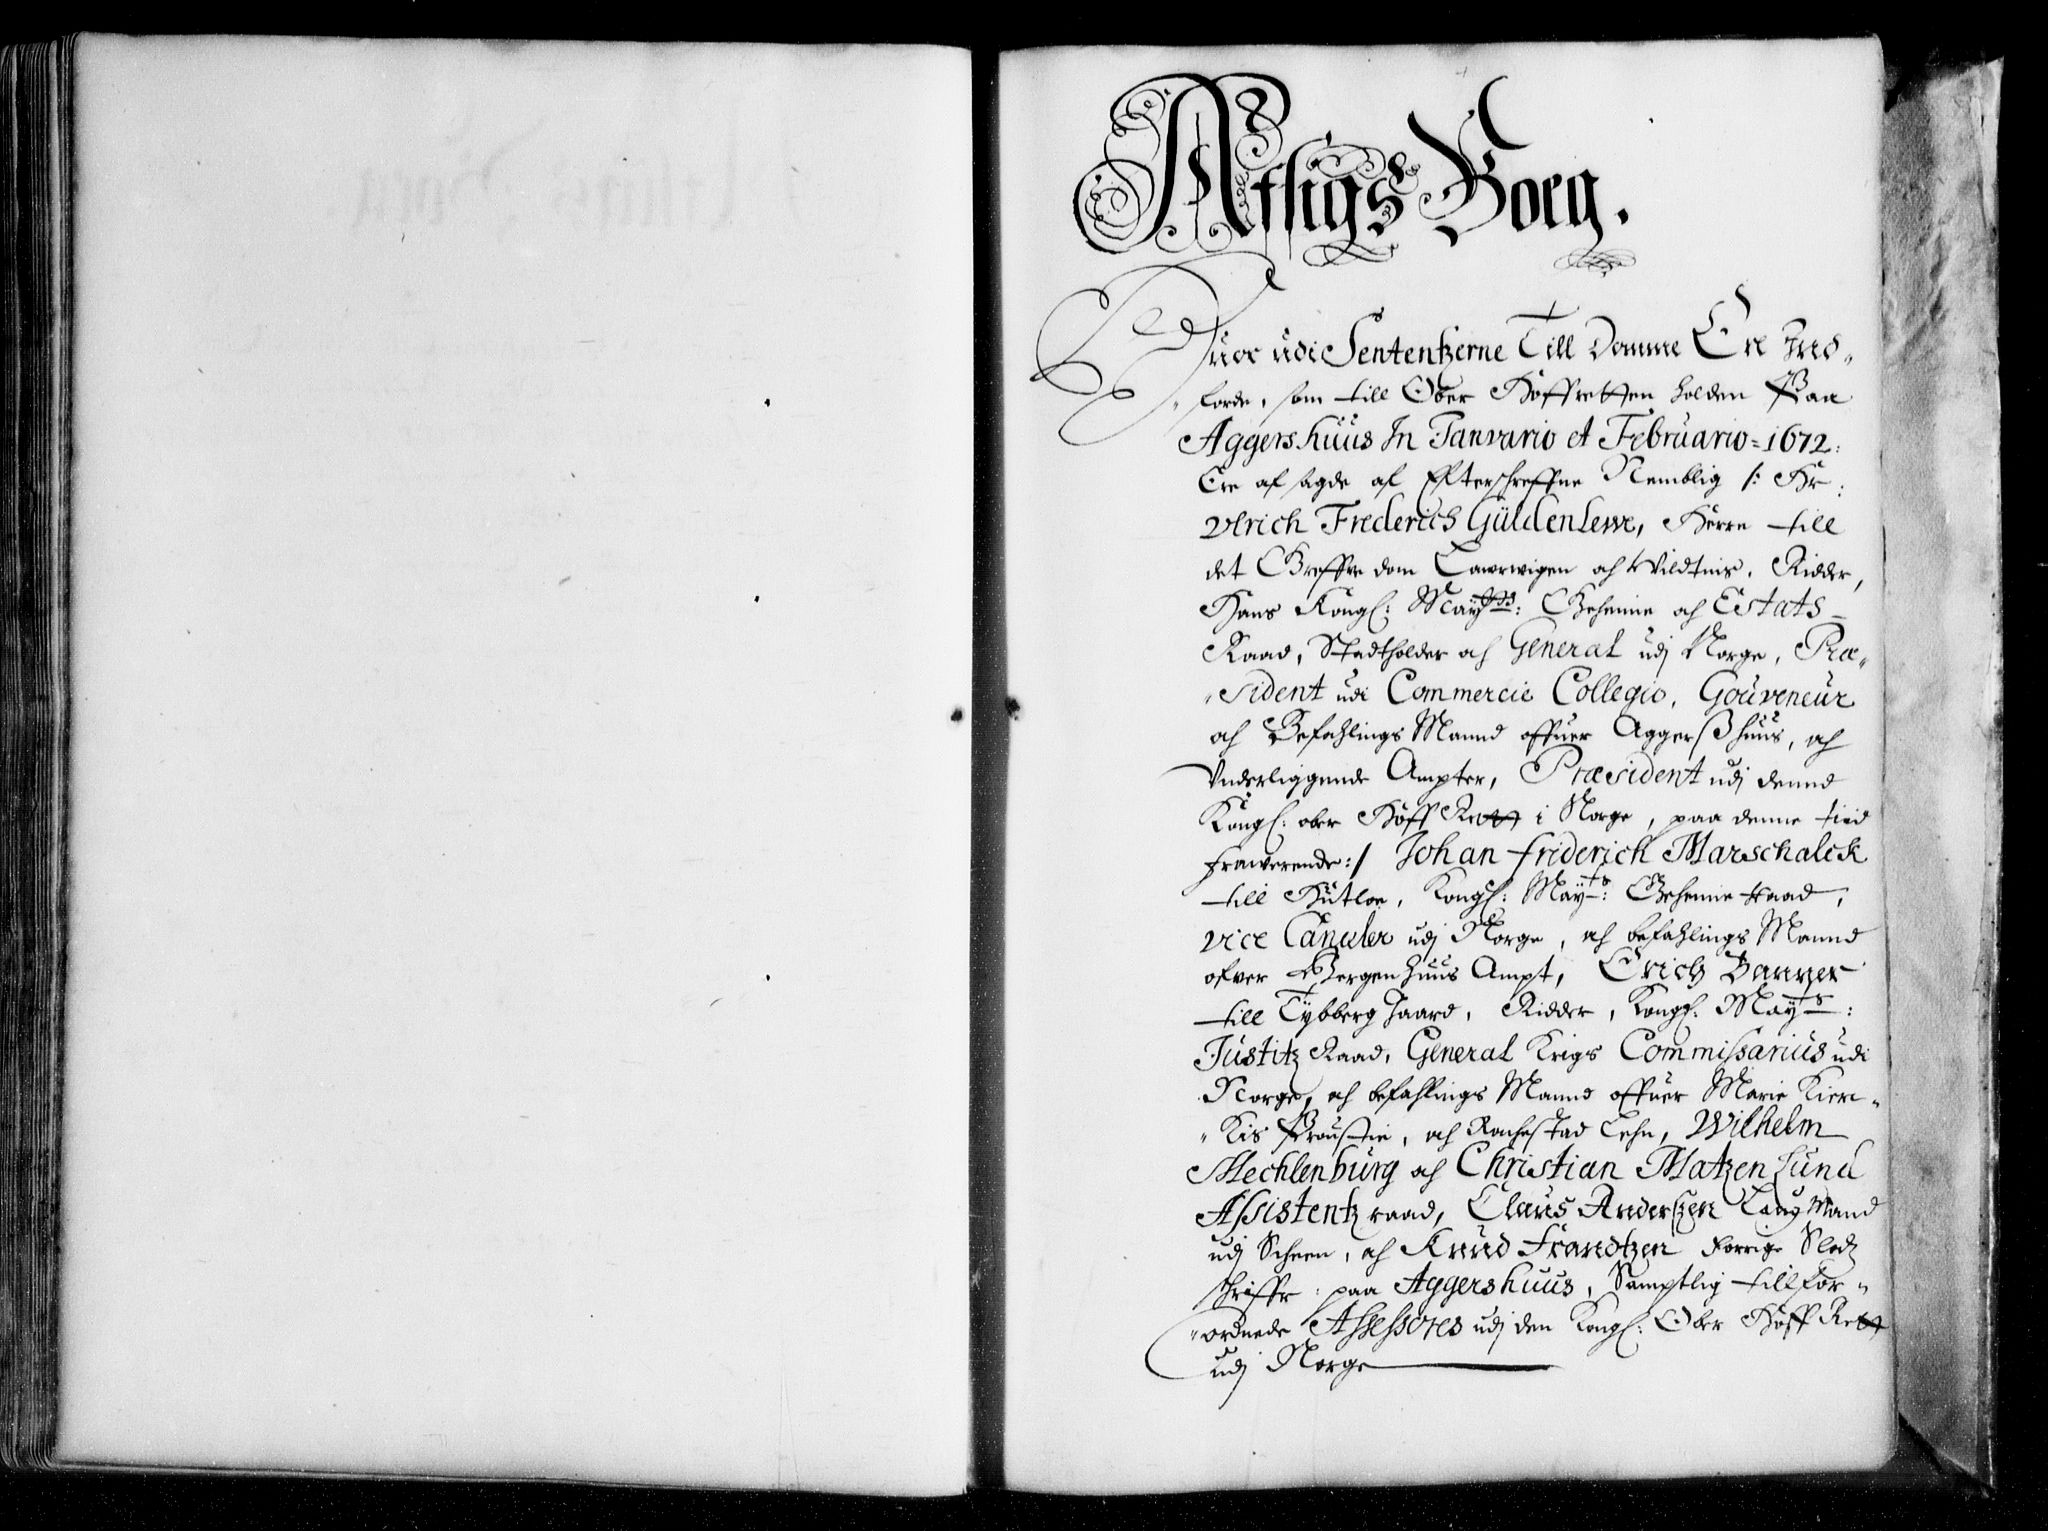 Afsigs Boeg.
Huor udi Sententzerne Till Domme Ere Ind„
„forde, som till Ober Hoffretten holden Paa
Aggershuus In Januario et Februario = 1672:
Ere af sagde af Efterschreffne Nemblig /: Hr:
Ulrich Frederich Güldenlewe, Herre till
det Greffve dom Laurwigen och Wildtnis, Ridder,
Hans Kongl: Mayts: Geheime och Estats-
Raad, Stadtholder och General udj Norge, Præ„
„sident udi Commercie Collegio, Gouveneur
och Befahlings Mannd offuer Aggerßhuus, och
Vnderliggende Ampter, Præsident udj denne
Kongl: ober Hoff Rett i Norge, paa denne tiid
frawerende :/ Johan friderich Marschalck
till Hütloe, Kongl: Mayts: Geheime Raad,
vice Canceler udj Norge, och befahlings Mannd
ofver Bergenhuus Ampt, Erich Banner
till Tybberg gaard, Ridder, Kongl. Mayts:
Justitz Raad, General Krigs Commissarius udi
Norge, och befahlings Mannd offuer Marie Kierc„
„kis Proustie, och Rachestad Lehn, Wilhelm
Mechlenburg och Christian Matzen Lund
Assistentz raad, Claus Andersen Laug Mand
udj Scheen, och Knud Frandtzen Forrige Slodz
schriffr: paa Aggershuus, Samptlig tillfor„
„ordnede Assessores udj den Kongl: Ober Hoff Rett
udj Norge